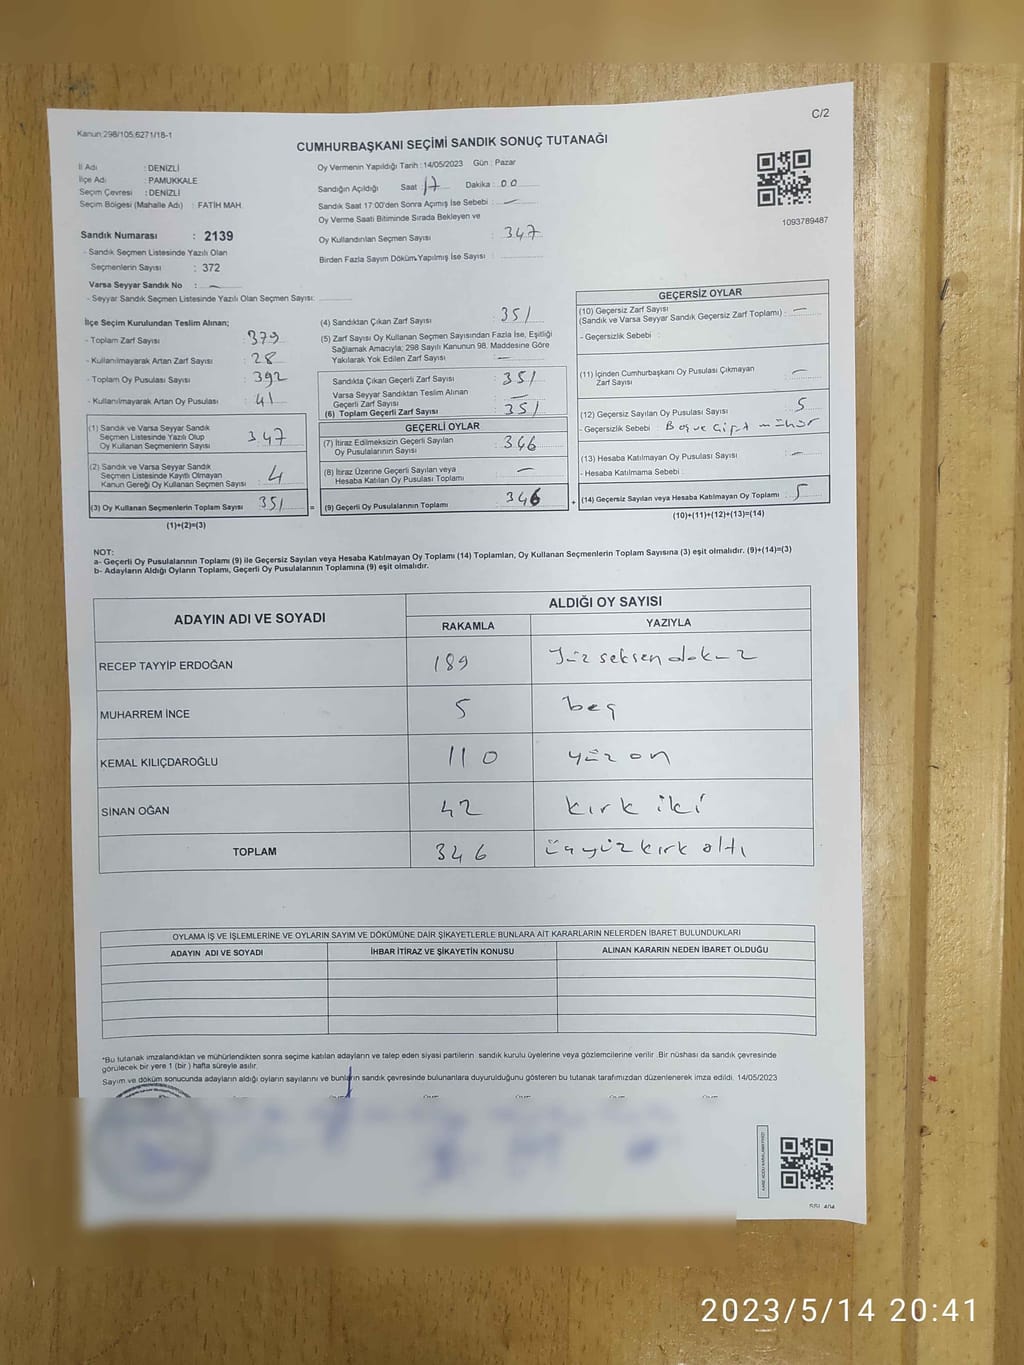 C/2
Kanun:298/105,6271/18-1
CUMHURBAŞKANI SEÇİMİ SANDIK SONUÇ TUTANAĞI
İl Adı : DENİZLİ
İlçe Adı : PAMUKKALE
Seçim Çevresi : DENİZLİ
Seçim Bölgesi (Mahalle Adı) : FATİH MAH.
Sandık Numarası : 2139
- Sandık Seçmen Listesinde Yazılı Olan
Seçmenlerin Sayısı : 372
Varsa Seyyar Sandık No : —
- Seyyar Sandık Seçmen Listesinde Yazılı Olan Seçmen Sayısı:
Oy Vermenin Yapıldığı Tarih : 14/05/2023 Gün : Pazar
Sandığın Açıldığı Saat : 17 Dakika : 00
Sandık Saat 17:00'den Sonra Açımış İse Sebebi : —
Oy Verme Saati Bitiminde Sırada Bekleyen ve
Oy Kullandırılan Seçmen Sayısı : 347
Birden Fazla Sayım Döküm Yapılmış İse Sayısı :
1093789487
İlçe Seçim Kurulundan Teslim Alınan;
- Toplam Zarf Sayısı : 379
- Kullanılmayarak Artan Zarf Sayısı : 28
- Toplam Oy Pusulası Sayısı : 392
- Kullanılmayarak Artan Oy Pusulası : 41
(1) Sandık ve Varsa Seyyar Sandık
Seçmen Listesinde Yazılı Olup
Oy Kullanan Seçmenlerin Sayısı : 347
(2) Sandık ve Varsa Seyyar Sandık
Seçmen Listesinde Kayıtlı Olmayan
Kanun Gereği Oy Kullanan Seçmen Sayısı : 4
(3) Oy Kullanan Seçmenlerin Toplam Sayısı : 351 =
(1)+(2)=(3)
(4) Sandıktan Çıkan Zarf Sayısı : 351
(5) Zarf Sayısı Oy Kullanan Seçmen Sayısından Fazla İse, Eşitliği
Sağlamak Amacıyla; 298 Sayılı Kanunun 98. Maddesine Göre
Yakılarak Yok Edilen Zarf Sayısı : —
Sandıkta Çıkan Geçerli Zarf Sayısı : 351
Varsa Seyyar Sandıktan Teslim Alınan
Geçerli Zarf Sayısı : —
(6) Toplam Geçerli Zarf Sayısı : 351
GEÇERLİ OYLAR
(7) İtiraz Edilmeksizin Geçerli Sayılan
Oy Pusulalarının Sayısı : 346
(8) İtiraz Üzerine Geçerli Sayılan veya
Hesaba Katılan Oy Pusulası Toplamı : —
(9) Geçerli Oy Pusulalarının Toplamı : 346 +
GEÇERSİZ OYLAR
(10) Geçersiz Zarf Sayısı
(Sandık ve Varsa Seyyar Sandık Geçersiz Zarf Toplamı) : —
- Geçersizlik Sebebi :
(11) İçinden Cumhurbaşkanı Oy Pusulası Çıkmayan
Zarf Sayısı : —
(12) Geçersiz Sayılan Oy Pusulası Sayısı : 5
- Geçersizlik Sebebi : Boş ve Çift mühür
(13) Hesaba Katılmayan Oy Pusulası Sayısı : —
- Hesaba Katılmama Sebebi :
(14) Geçersiz Sayılan veya Hesaba Katılmayan Oy Toplamı : 5
(10)+(11)+(12)+(13)=(14)
NOT:
a- Geçerli Oy Pusulalarının Toplamı (9) ile Geçersiz Sayılan veya Hesaba Katılmayan Oy Toplamı (14) Toplamları, Oy Kullanan Seçmenlerin Toplam Sayısına (3) eşit olmalıdır. (9)+(14)=(3)
b- Adayların Aldığı Oyların Toplamı, Geçerli Oy Pusulalarının Toplamına (9) eşit olmalıdır.
ADAYIN ADI VE SOYADI ALDIĞI OY SAYISI
RAKAMLA YAZIYLA
RECEP TAYYİP ERDOĞAN 189 Yüz seksen dokuz
MUHARREM İNCE 5 beş
KEMAL KILIÇDAROĞLU 110 yüz on
SİNAN OĞAN 42 kırk iki
TOPLAM 346 üçyüz kırk altı
OYLAMA İŞ VE İŞLEMLERİNE VE OYLARIN SAYIM VE DÖKÜMÜNE DAİR ŞİKAYETLERLE BUNLARA AİT KARARLARIN NELERDEN İBARET BULUNDUKLARI
ADAYIN ADI VE SOYADI İHBAR İTİRAZ VE ŞİKAYETİN KONUSU ALINAN KARARIN NEDEN İBARET OLDUĞU
*Bu tutanak imzalandıktan ve mühürlendikten sonra seçime katılan adayların ve talep eden siyasi partilerin sandık kurulu üyelerine veya gözlemcilerine verilir .Bir nüshası da sandık çevresinde
görülecek bir yere 1 (bir ) hafta süreyle asılır.
Sayım ve döküm sonucunda adayların aldığı oyların sayılarını ve bunların sandık çevresinde bulunanlara duyurulduğunu gösteren bu tutanak tarafımızdan düzenlenerek imza edildi. 14/05/2023
2023/5/14 20:41